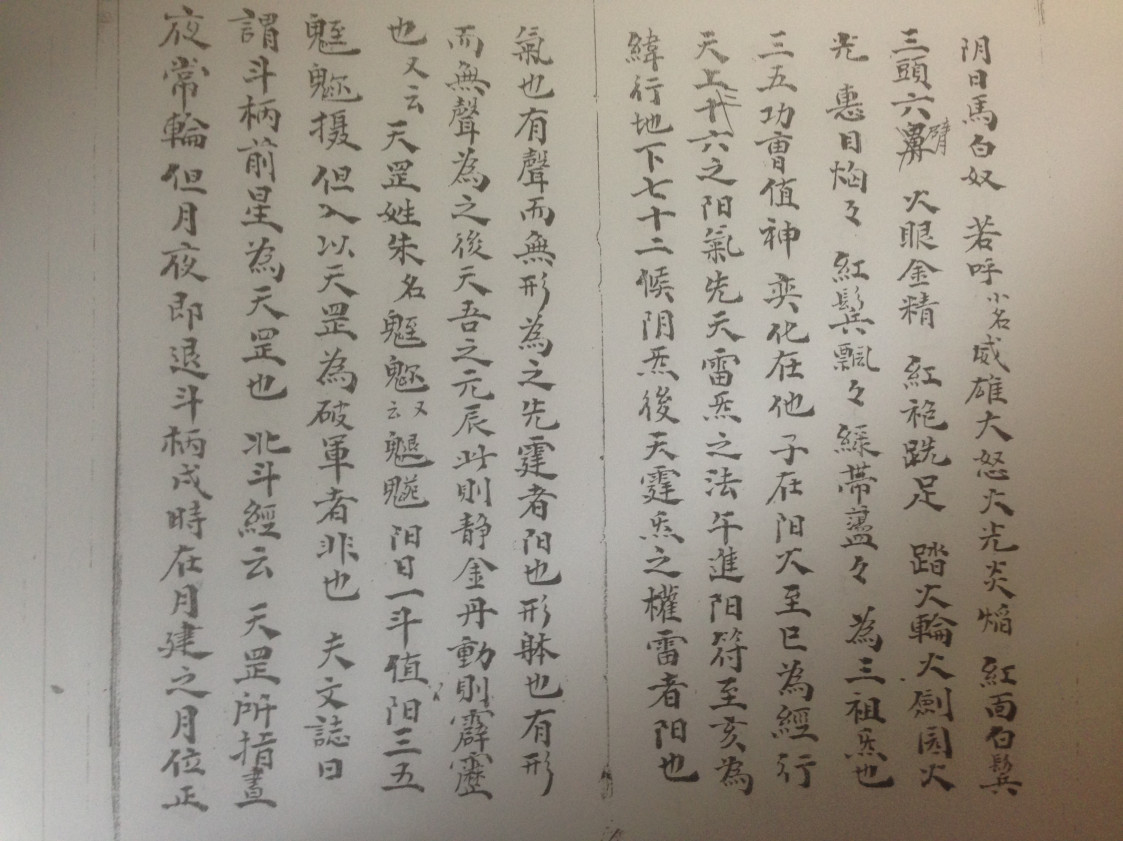 阴日馬白奴 若呼小名威雄大怒火光炎焰 紅面白鬓
三頭六臂 火眼金精 紅袍跣足 踏火輪火劍困火
光 惠目焰々 紅鬓飄々 綵帶盪々 為三祖炁也
三五功曹值神 奕化在他 子在阳火至巳為經行
天上三十六之阳氣先天雷炁之法午進阳符至亥為
緯行地下七十二候阴炁後天霆炁之權雷者阳也
氣也有聲而無形為之先霆者阳也形躰也有形
而無聲為之後天吾之元辰此則静金丹動則霹靂
也又云天罡姓朱名魁又云阳日一斗值阳三五
摄但入以天罡為破軍者非也 夫文誌曰
謂斗柄前星為天罡也 北斗經云 天罡所指晝
夜常輪但月夜即退斗柄戌時在月建之月位正